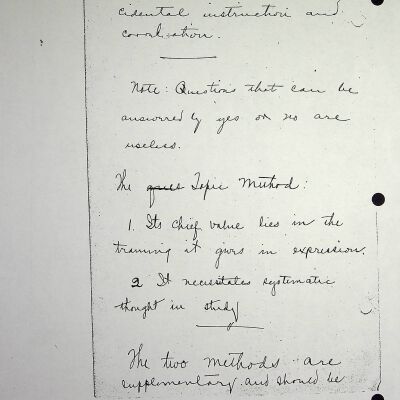 cidental instruction and
correlation.
Note: Questions that can be
answered by yes or no are
useless.
The ques Topic Method:
1. Its chief value lies in the
training it gives in expression.
2 It necessitates systematic
thought in study
The two methods are
supplementary and should be